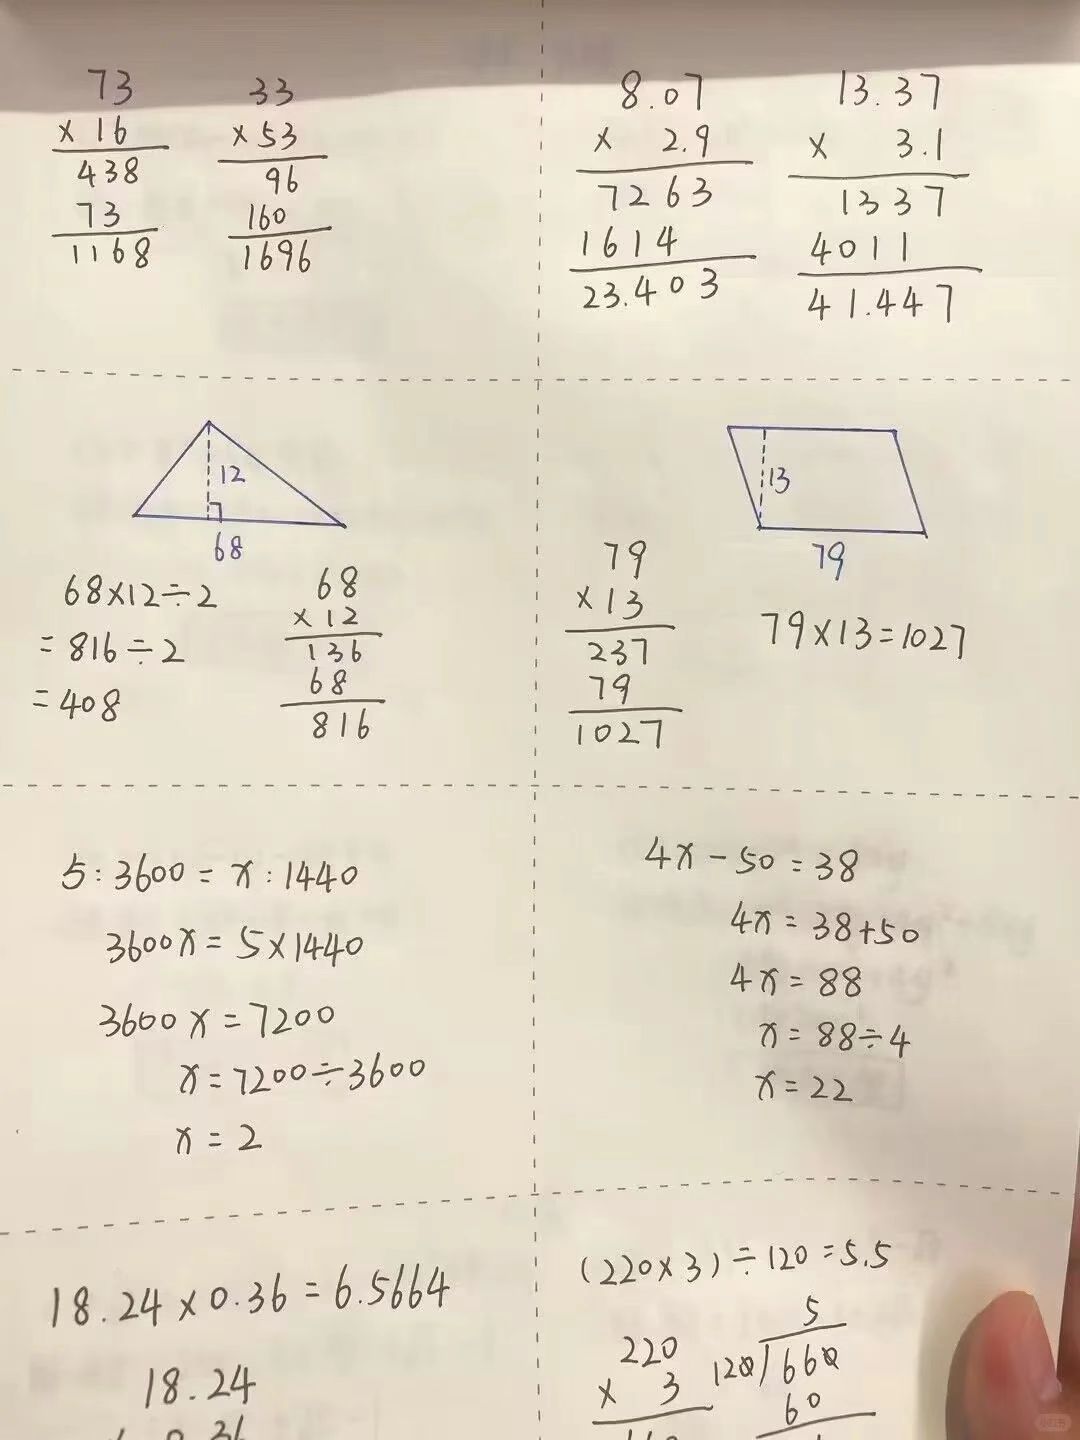 73
× 16
438
73
1168
33
× 53
96
160
1696
8.07
× 2.9
7263
1614
23.403
13.37
× 3.1
1337
4011
41.447
12
68
68×12÷2
= 816÷2
= 408
68
× 12
136
68
816
13
79
79
× 13
237
79
1027
79×13=1027
5:3600=x:1440
3600x=5×1440
3600x=7200
x=7200÷3600
x=2
4x-50=38
4x=38+50
4x=88
x=88÷4
x=22
18.24×0.36=6.5664
18.24
0.36
(220×3)÷120=5.5
220
× 3
5
120)660
60